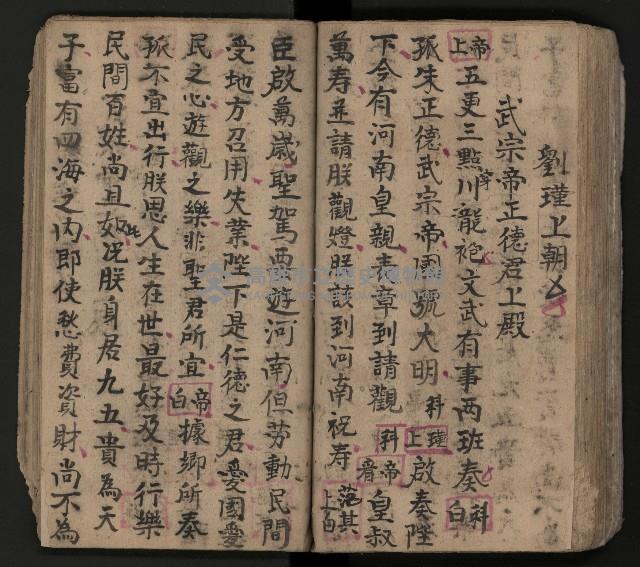 劉瑾上朝
武宗帝正德君上殿
上帝五更三點川龍袍文武有事兩班奏白科
孤朱正德武宗帝國號大明科上瑾啟奏陛
下今有河南皇親表章到請觀科帝皇叔
萬寿並請朕觀燈朕該到河南祝寿
臣啟萬歲聖駕西遊河南但劳動民間
受地方召用失業陛下是仁德之君愛國愛
民之心遊觀之樂非聖君所宜白帝據鄉所奏
孤不宜出行朕思人生在世最好及時行樂
民間百姓尚且如此況朕身居九五貴為天
子富有四海之内即使愁費資財尚不為
高雄市立歷史博物館